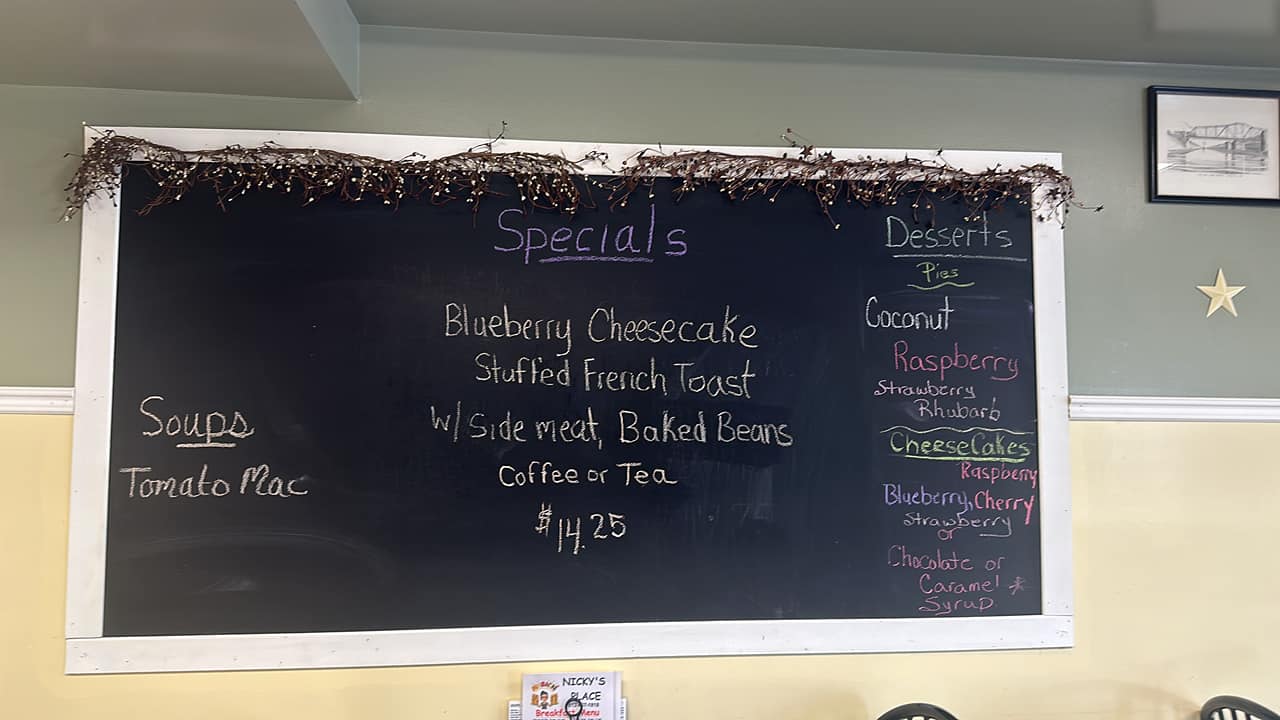 Specials
Blueberry Cheesecake
Stuffed French Toast
w/ Side meat, Baked Beans
Coffee or Tea
$14.25
Soups
Tomato Mac
Desserts
Pies
Coconut
Raspberry
Strawberry
Rhubarb
CheeseCakes
Raspberry
Blueberry, Cherry
Strawberry
or
Chocolate or
Caramel *
Syrup
NICKY'S
PLACE
Breakfast Menu